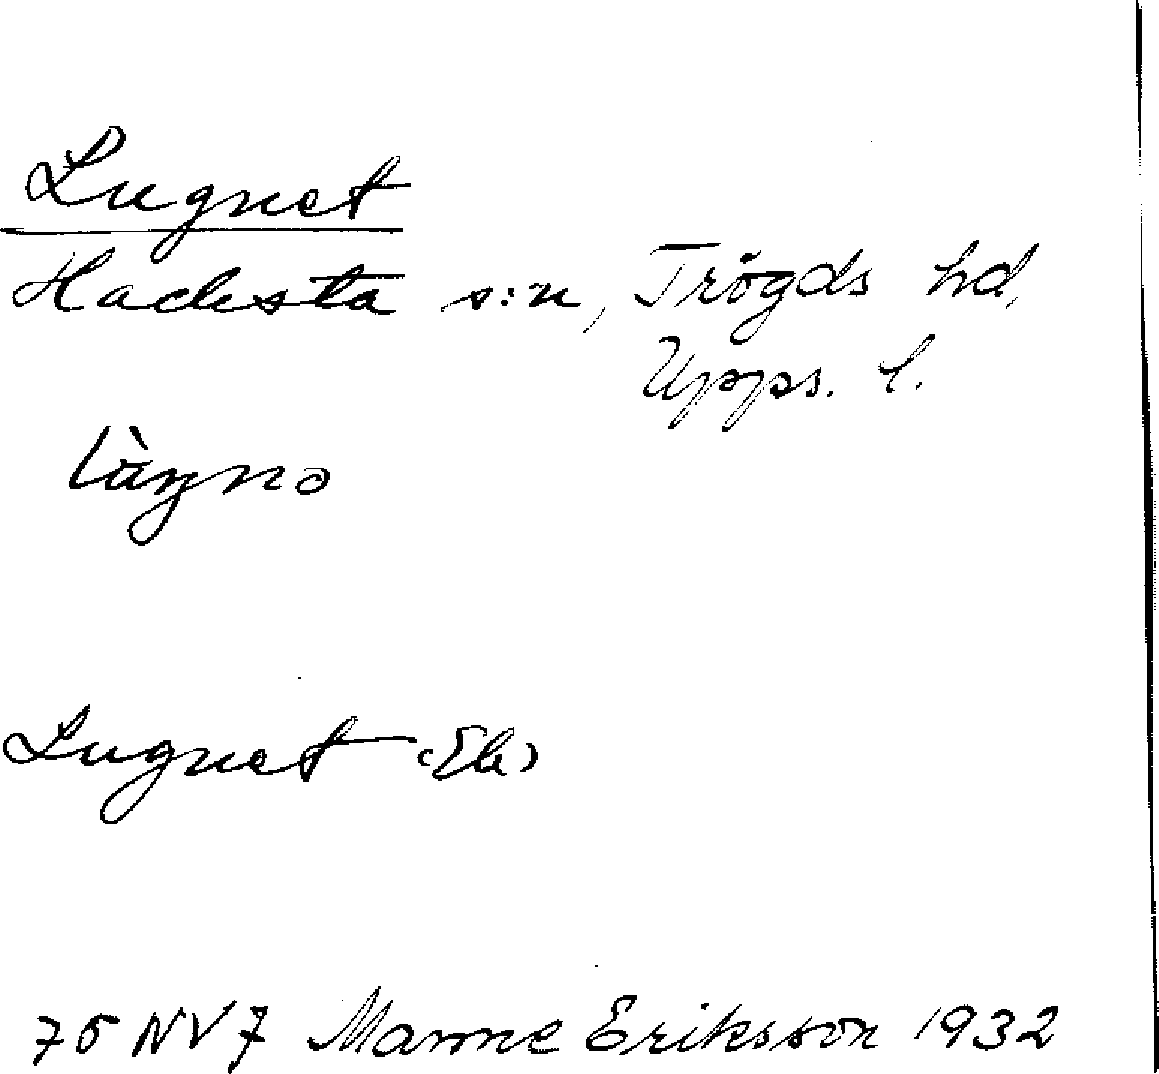 Lugnet
Hacksta s:n, Trögds hd,
Upps. l.
Lugnet (Ek)
75 NV 7 Manne Eriksson 1932